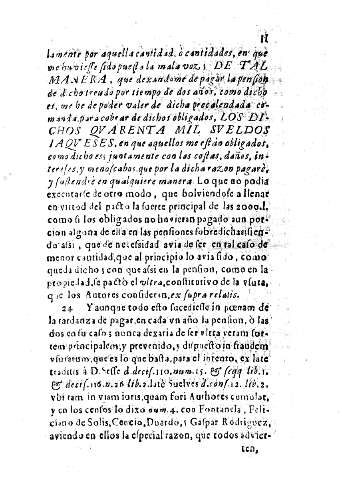 11
lamente por aquella cantidad, ò cantidades, en que
me huuiesse sido puesta la mala voz; DE TAL
MANERA, que dexandome de pagar la pension
de dicho treudo por tiempo de dos años, como dicho
es, me he de poder valer de dicha precalendada co-
manda, para cobrar de dichos obligados, LOS DI-
CHOS QVARENTA MIL SVELDOS
IAQVESES, en que aquellos me están obligados,
como dicho es; juntamente con las costas, daños, in-
teresses, y menoscabos, que por la dicha razon pagarè,
y sustendrè en qualquiere manera. Lo que no podia
executarse de otro modo, que bolviendose a llenar
en virtud del pacto la suerte principal de las 2000.l.
como si los obligados no huvieran pagado aun por-
cion alguna de ella en las pensiones sobredichas; sien-
do assi, que de necesidad avia de ser en tal caso de
menor cantidad, que al principio lo avia sido, como
queda dicho; con que assi en la pension, como en la
propiedad, se pactò el vltra, constitutivo de la vsura,
que los Autores consideran, ex supra relatis.
24 Y aunque todo esto sucediesse in pœnam de
la tardanza de pagar, en cada vn año la pension, ò las
dos en su caso; nunca dexaria de ser vltra veram sor-
tem principalem, y prevenido, y dispuesto in fraudem
vsurarum, que es lo que basta, para el intento, ex late
traditis à D. Sesse d. decis. 110. num. 15. & seqq. lib. 1.
& decis. 116. n. 26. lib. 2. latè Suelves d. cons. 12. lib. 2.
vbi tam in viam iuris, quam fori Authores cumulat,
y en los censos lo dixo num. 4. con Fontanela, Feli-
ciano de Solis, Cencio, Duardo, y Gaspar Rodriguez,
aviendo en ellos la especial razon, que todos advier-
ten,